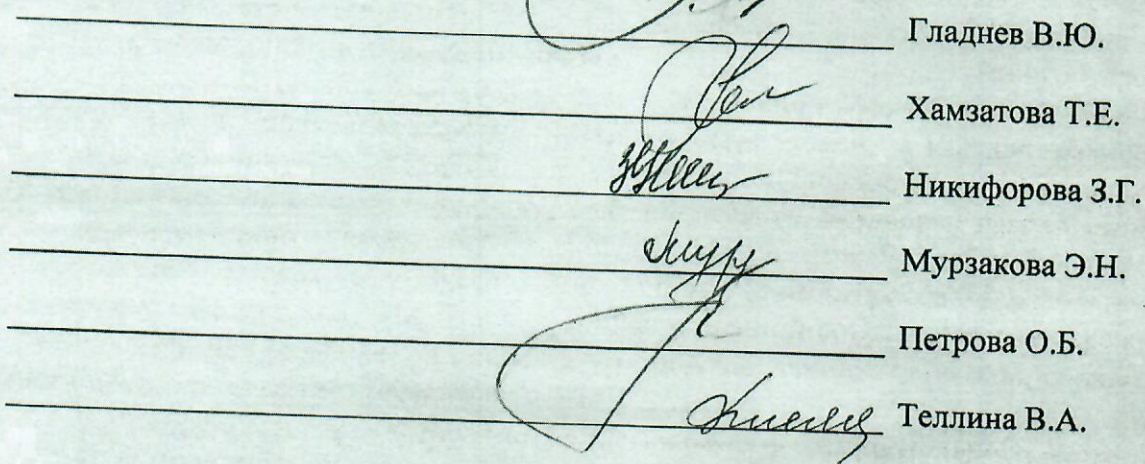 Гладнев В.Ю.
Хамзатова Т.Е.
Никифорова З.Г.
Мурзакова Э.Н.
Петрова О.Б.
Теллина В.А.